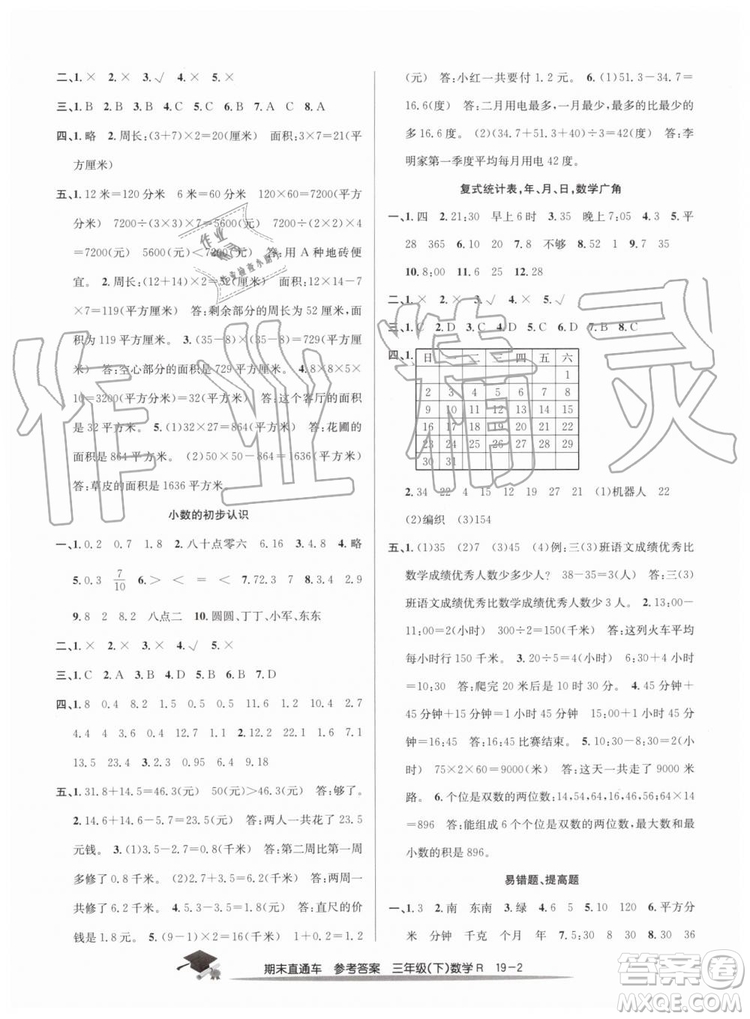 二、1.× 2.× 3.√ 4.× 5.×
三、1.B 2.B 3.B 4.C 5.C 6.B 7.C 8.A
四、1.略 2.周长:(3+7)×2=20(厘米) 面积:3×7=21(平
方厘米)
五、1.12米=120分米 6米=60分米 120×60=7200(平方
分米) 7200÷(3×3)×7=5600(元) 7200÷(2×2)×4
=7200(元) 5600(元)<7200(元) 答:用A种地砖便
宜。2.(12+14)×2=52(厘米) 面积:12×14-7×
7=119(平方厘米) 答:剩余部分的周长为52厘米,面
积为119平方厘米。3.(35-8)×8×4=864(平方厘
米) 答:空心部分的面积是864平方厘米。4.8×8×5×
10=3200(平方分米)=32(平方米) 答:这个客厅的面积
是32平方米。5.(1)32×27=864(平方米) 答:花圃的
面积是864平方米。(2)50×50-864=1636(平方米)
答:草皮的面积是1636平方米。
小数的初步认识
一、1.0.2 0.7 0.9 2.八十点零六 6.16 3.8.8 4.略
5.0.3 7/10 6.> < = < 7.72.3 23.7 8.1.1 1.2
9.8 2 8.2 八点二 10.圆圆、丁丁、小军、东东
二、1.× 2.× 3.× 4.√ 5.×
三、1.C 2.A 3.B 4.A 5.B 6.B 7.D
四、1.8 0.4 2.4 0.5 0.8 0.8 11.6 0.9 0.2 7.1
2.15.1 7.7 6.6 12 2.7 24.8 3.51 22.1 7.4
13.5 23.8 4.12.4
五、1.31.8+14.5=46.3(元) 50(元)>46.3(元) 答:够了。
2.14.5-5.5=9(元) 14.5+9=23.5(元) 答:两人一共花了23.5
元钱。3.(1)3.5-2.7=0.8(千米) 答:第二周比第一周
多修了0.8千米。(2)2.7+3.5=6.2(千米) 答:两周一共
修了6.2千米。4.3.5-2.7=0.8(元) 答:直尺的价
钱是0.8元。5.(9-1)×2=16(元) 16-9.2-5.6=1.2
(元) 答:小红一共要付1.2元。6.(1)51.3-34.7=
16.6(度) 答:二月用电最多,一月最少,最多的比最少的
多16.6度。(2)(34.7+51.3+40)÷3=42(度) 答:李
明家第一季度平均每月用电42度。
复式统计表,年、月、日,数学广角
一、1.四 2.21:30 早上6时 3.35 晚上7:05 4.3 5.平
28 365 6.0 7.100 8.120 9.大 不够 够 不够
10.8:00 11.6 12.5 2-28
二、1.× 2.× 3.√ 4.× 5.×
三、1.C 2.D 3.C 4.B 5.D 6.B 7.B 8.C
四、1.
日 一 二 三 四 五 六
1
2 3 4 5 6 7 8
9 10 11 12 13 14 15
16 17 18 19 20 21 22
23 24 25 26 27 28 29
30 31
2.34 22 4 15 19 21 35 25(1)机器人 22
(2)编织 (3)154
五、1.(1)35 (2)7 (3)45 (4)例:三(3)班语文成绩优秀比
数学成绩优秀人数少多少人? 38-35=3(人) 答:三(3)
班语文成绩优秀人数比数学成绩优秀人数少3人。2.
750÷5=150(千米) 答:这列火车平均
每小时行150千米。3.20÷5=4(小时) 6:10+4(小时)
=10:10 答:爬完20千米是10:10。4.45分钟+
45分钟+15分钟=1小时45分钟 答:16:45比赛结束。5.10小时30分
75×2×60=9000(米) 答:两人共走了9000米
路。6.个位是双数的两位数:14,54,16,46,56,64;64×14=
896 答:能组成6个个位是双数的两位数,最大数和最
小数的积是896。
易错题、提高题
一、1.3 2.南 东南 3.绿 4.30 5.12 6.平方分
米 米 分钟 千克 个月 月 年 7.30 8.30 36
期末直通车 参考答案 三年级(下)数学R 19-2
作业精灵
答案圈